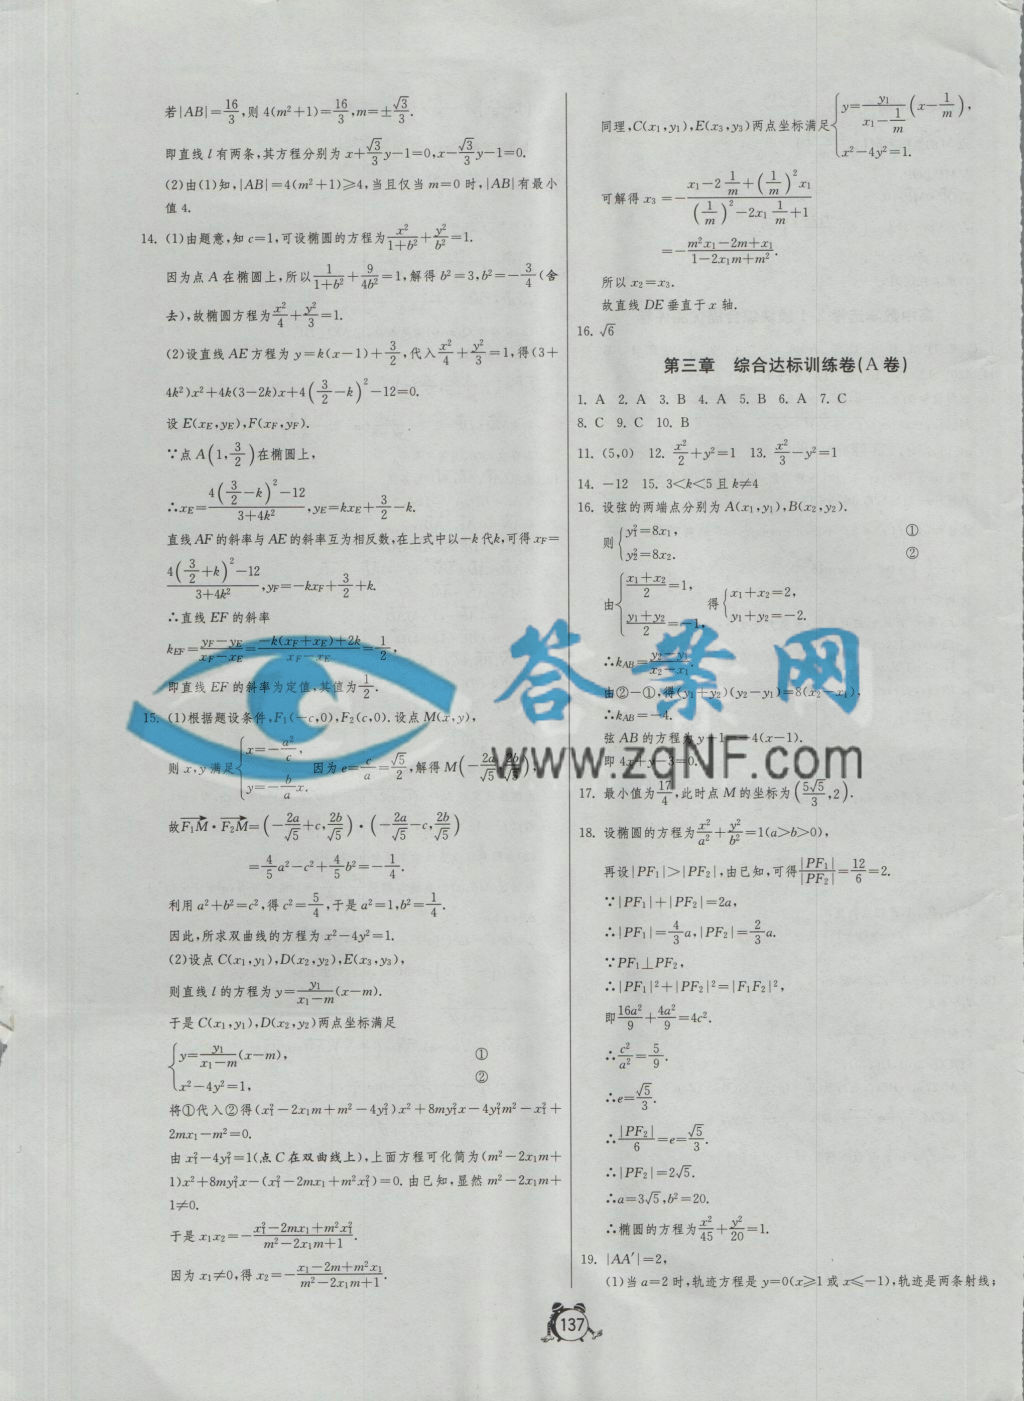 若|AB|=16/3,则 4(m²+1)=16/3,m=±√3/3.
即直线 l 有两条,其方程分别为 x+(√3/3)y-1=0,x-(√3/3)y-1=0.
(2)由(1)知,|AB|=4(m²+1)≥4,当且仅当 m=0 时,|AB|有最小
值 4.
14. (1)由题意,知 c=1,可设椭圆的方程为 x²/(1+b²)+y²/b²=1.
因为点 A 在椭圆上,所以 1/(1+b²)+9/(4b²)=1,解得 b²=3,b²=-3/4(舍
去),故椭圆方程为 x²/4+y²/3=1.
(2)设直线 AE 方程为 y=k(x-1)+3/2,代入 x²/4+y²/3=1,得(3+
4k²)x²+4k(3-2k)x+4(3/2-k)²-12=0.
设 E(xE,yE),F(xF,yF).
∵点 A(1,3/2)在椭圆上,
∴xE=[4(3/2-k)²-12]/(3+4k²),yE=kxE+3/2-k.
直线 AF 的斜率与 AE 的斜率互为相反数,在上式中以-k 代k,可得 xF=
[4(3/2+k)²-12]/(3+4k²),yF=-kxF+3/2+k.
∴直线 EF 的斜率
kEF=(yF-yE)/(xF-xE)=[-k(xF+xE)+2k]/(xF-xE)=1/2,
即直线 EF 的斜率为定值,其值为 1/2.
15. (1)根据题设条件,F₁(-c,0),F₂(c,0). 设点 M(x,y),
则 x,y 满足{x=-a²/c, y=-(b/a)x. 因为 e=c/a=√5/2,解得 M(-2a/√5,2b/√5),
故F₁M·F₂M=(-2a/√5+c,2b/√5)·(-2a/√5-c,2b/√5)
=(4/5)a²-c²+(4/5)b²=-1/4.
利用 a²+b²=c²,得 c²=5/4,于是 a²=1,b²=1/4.
因此,所求双曲线的方程为 x²-4y²=1.
(2)设点 C(x₁,y₁),D(x₂,y₂),E(x₃,y₃),
则直线 l 的方程为 y=y₁/(x₁-m)(x-m).
于是 C(x₁,y₁),D(x₂,y₂)两点坐标满足
{y=y₁/(x₁-m)(x-m), ①
x²-4y²=1, ②
将①代入②得(x₁²-2x₁m+m²-4y₁²)x²+8my₁²x-4y₁²m²-x₁²+
2mx₁-m²=0.
由 x₁²-4y₁²=1(点 C 在双曲线上),上面方程可化简为(m²-2x₁m+
1)x²+8my₁²x-(x₁²-2mx₁+m²x₁²)=0. 由已知,显然 m²-2x₁m+
1≠0.
于是 x₁x₂=-(x₁²-2mx₁+m²x₁²)/(m²-2x₁m+1).
因为 x₁≠0,得 x₂=-(x₁-2m+m²x₁)/(m²-2x₁m+1).
同理,C(x₁,y₁),E(x₃,y₃)两点坐标满足{y=y₁/(x₁-1/m)(x-1/m),
x²-4y²=1.
可解得 x₃=-[x₁-2·1/m+(1/m)²x₁]/[(1/m)²-2x₁·1/m+1]
=-(m²x₁-2m+x₁)/(1-2x₁m+m²).
所以 x₂=x₃.
故直线 DE 垂直于 x 轴.
16. √6
第三章 综合达标训练卷(A 卷)
1. A 2. A 3. B 4. A 5. B 6. A 7. C
8. C 9. C 10. B
11. (5,0) 12. x²/2+y²=1 13. x²/3-y²=1
14. -12 15. 3<k<5 且 k≠4
16. 设弦的两端点分别为 A(x₁,y₁),B(x₂,y₂).
则{y₁²=8x₁, ①
y₂²=8x₂. ②
由{(x₁+x₂)/2=1, (y₁+y₂)/2=-1, 得{x₁+x₂=2, y₁+y₂=-2.
∴kAB=(y₂-y₁)/(x₂-x₁).
由②-①,得(y₁+y₂)(y₂-y₁)=8(x₂-x₁),
∴kAB=-4.
弦 AB 的方程为 y+1=-4(x-1).
即 4x+y-3=0.
17. 最小值为 17/4,此时点 M 的坐标为(5√5/3,2).
18. 设椭圆的方程为 x²/a²+y²/b²=1(a>b>0),
再设|PF₁|>|PF₂|,由已知,可得|PF₁|/|PF₂|=12/6=2.
∵|PF₁|+|PF₂|=2a,
∴|PF₁|=(4/3)a,|PF₂|=(2/3)a.
∵PF₁⊥PF₂,
∴|PF₁|²+|PF₂|²=|F₁F₂|²,
即 16a²/9+4a²/9=4c².
∴c²/a²=5/9.
∴e=√5/3.
∴|PF₂|/6=e=√5/3.
∴|PF₂|=2√5.
∴a=3√5,b²=20.
∴椭圆的方程为 x²/45+y²/20=1.
19. |AA′|=2,
(1)当 a=2 时,轨迹方程是 y=0(x≥1 或 x≤-1),轨迹是两条射线;
137
答案网
www.zqNF.com